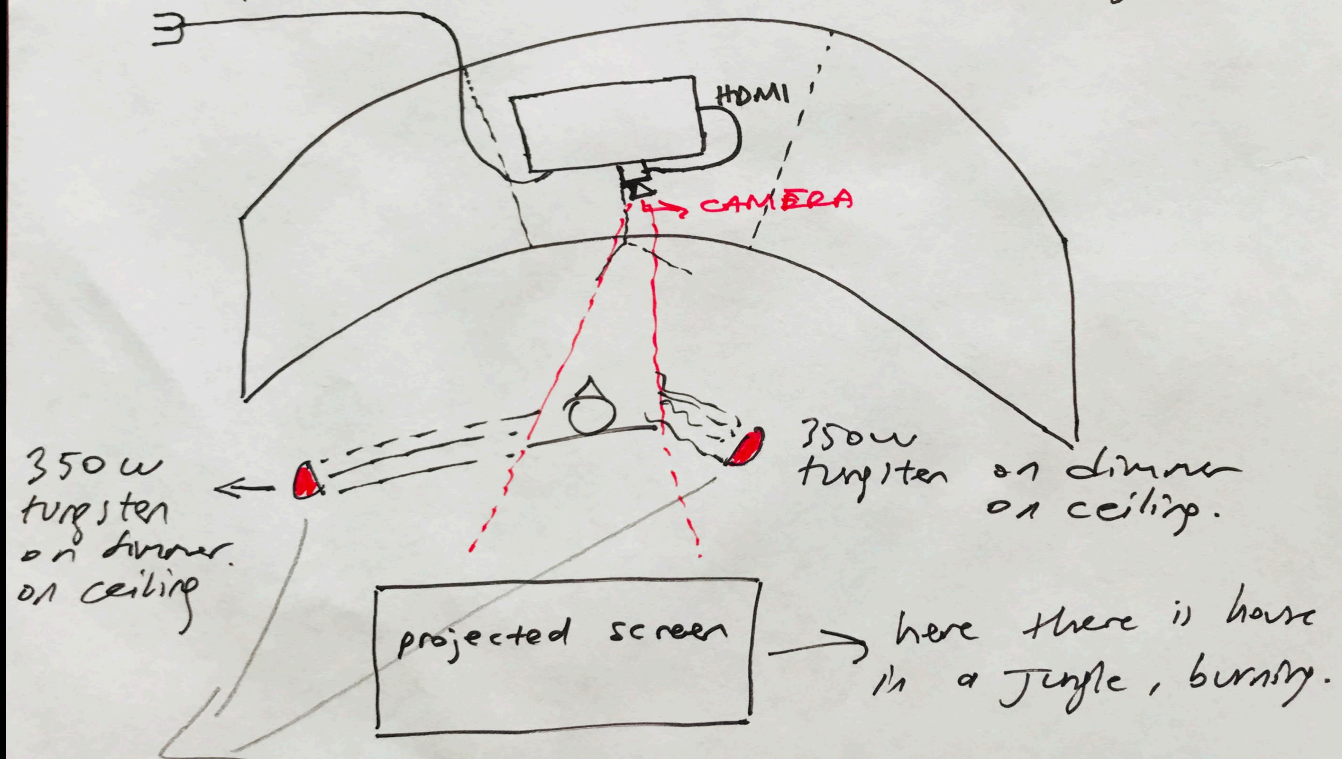 HDMI
CAMERA
350w
tungsten
on dimmer.
on ceiling
350w
tungsten on dimmer
on ceiling.
projected screen
here there is house
in a Jungle, burning.